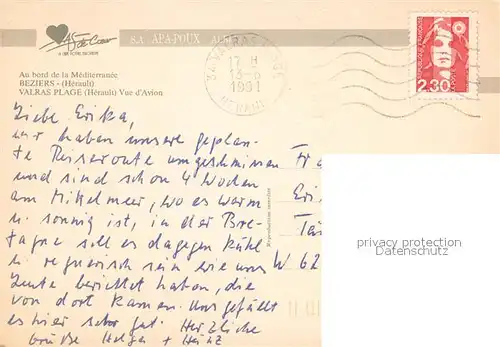 As de Cœur
S.A. APA-POUX
Au bord de la Méditerranée
BEZIERS - (Hérault)
VALRAS PLAGE (Hérault) Vue d'Avion
17 H
13-6
1991
HERAULT
2,30
Liebe Erika,
wir haben unsere geplan-
te Reiseroute umgeschmissen
und sind schon 4 Wochen
am Mittelmeer, wo es warm
u. sonnig ist, in der Bre-
tagne soll es dagegen kühl
u. regnerisch sein wie uns
Leute berichtet haben, die
von dort kamen. Uns gefällt
es hier sehr gut. Herzliche
Grüße Helga + Heinz
Reproduction interdite
Fr
Eri
W 62
privacy protection
VRDDANCARDS.COM